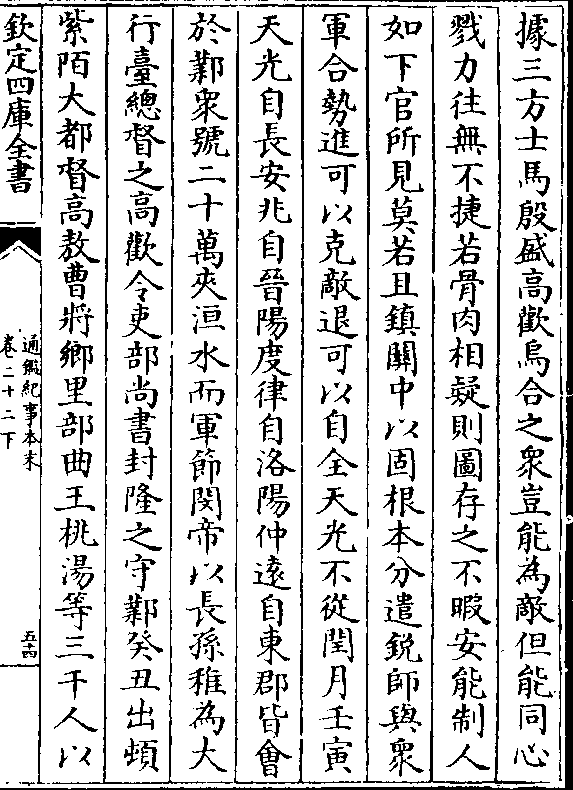 據三方士馬殷盛高歡烏合之衆豈能為敵但能同心
戮力往無不捷若骨肉相疑則圖存之不暇安能制人
如下官所見莫若且鎮關中以固根本分遣銳師與衆
軍合勢進可以克敵退可以自全天光不從閏月壬寅
天光自長安兆自晉陽度律自洛陽仲遠自東郡皆會
於鄴衆號二十萬夾洹水而軍節閔帝以長孫稚為大
行臺總督之高歡令吏部尚書封隆之守鄴癸丑出頓
紫陌大都督高敖曹將鄉里部曲王桃湯等三千人以
欽定四庫全書
通鑑紀事本末
卷二十二下
五十四